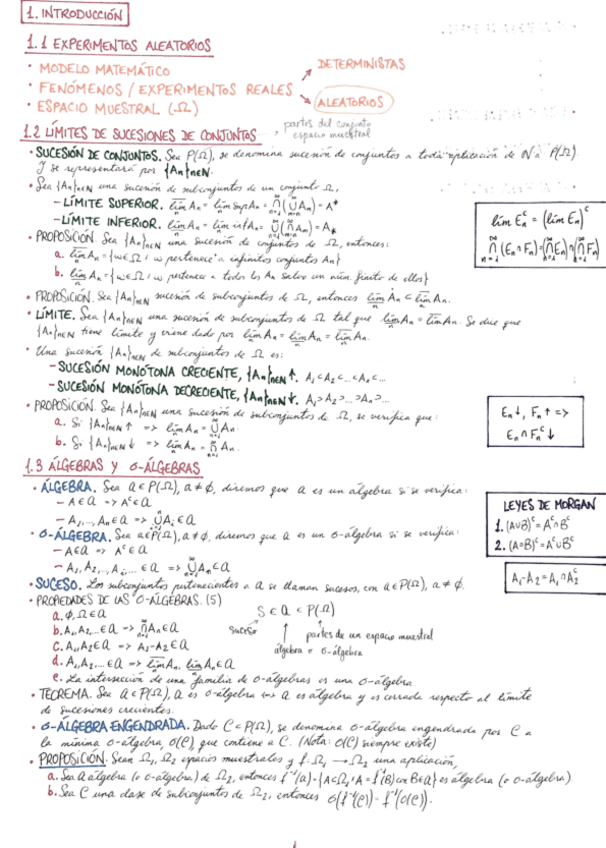 1. INTRODUCCIÓN
1.1 EXPERIMENTOS ALEATORIOS
· MODELO MATEMÁTICO
DETERMINISTAS
· FENÓMENOS / EXPERIMENTOS REALES
ALEATORIOS
· ESPACIO MUESTRAL (Ω)
partes del conjunto
espacio muestral
1.2 LÍMITES DE SUCESIONES DE CONJUNTOS
· SUCESIÓN DE CONJUNTOS. Sea P(Ω), se denomina sucesión de conjuntos a toda aplicación de N a P(Ω).
Y se representará por {An}n∈N.
· Sea {An}n∈N una sucesión de subconjuntos de un conjunto Ω,
– LÍMITE SUPERIOR. lim An = lim sup An = ∩(∪Am) = A*
– LÍMITE INFERIOR. lim An = lim inf An = ∪(∩Am) = A*
lim Enᶜ = (lim En)ᶜ
∩(En∩Fn) = (∩En)∩(∩Fn)
· PROPOSICIÓN. Sea {An}n∈N una sucesión de conjuntos de Ω, entonces:
a. lim An = {w∈Ω / w pertenece a infinitos conjuntos An}
b. lim An = {w∈Ω / w pertenece a todos los An salvo un núm. finito de ellos}
· PROPOSICIÓN. Sea {An}n∈N sucesión de subconjuntos de Ω, entonces lim An ⊂ lim An.
· LÍMITE. Sea {An}n∈N una sucesión de subconjuntos de Ω tal que lim An = lim An. Se dice que
{An}n∈N tiene límite y viene dado por lim An = lim An = lim An.
· Una sucesión {An}n∈N de subconjuntos de Ω es:
– SUCESIÓN MONÓTONA CRECIENTE, {An}n∈N ↑. A1⊂A2⊂...⊂An⊂...
– SUCESIÓN MONÓTONA DECRECIENTE, {An}n∈N ↓. A1⊃A2⊃...⊃An⊃...
· PROPOSICIÓN. Sea {An}n∈N una sucesión de subconjuntos de Ω, se verifica que:
a. Si {An}n∈N ↑ => lim An = ∪An.
b. Si {An}n∈N ↓ => lim An = ∩An.
En↓, Fn↑ =>
En∩Fnᶜ ↓
1.3 ÁLGEBRAS Y σ-ÁLGEBRAS
· ÁLGEBRA. Sea a⊂P(Ω), a≠∅, diremos que a es un álgebra si se verifica:
– A∈a => Aᶜ∈a
– A1,...,An∈a => ∪Ai∈a
· σ-ÁLGEBRA. Sea a⊂P(Ω), a≠∅, diremos que a es un σ-álgebra si se verifica:
– A∈a => Aᶜ∈a
– A1,A2,...,Ai,...∈a => ∪An∈a
LEYES DE MORGAN
1. (A∪B)ᶜ=Aᶜ∩Bᶜ
2. (A∩B)ᶜ=Aᶜ∪Bᶜ
A1-A2=A1∩A2ᶜ
· SUCESO. Los subconjuntos pertenecientes a a se llaman sucesos, con a⊂P(Ω), a≠∅.
· PROPIEDADES DE LAS σ-ÁLGEBRAS. (5)
a. ∅,Ω∈a
b. A1,A2,...∈a => ∩An∈a
c. A1,A2∈a => A1-A2∈a
d. A1,A2,...∈a => lim An, lim An∈a
e. La intersección de una familia de σ-álgebras es una σ-álgebra.
S∈a⊂P(Ω)
suceso
partes de un espacio muestral
álgebra o σ-álgebra
· TEOREMA. Sea a⊂P(Ω), a es σ-álgebra <=> a es álgebra y es cerrada respecto al límite
de sucesiones crecientes.
· σ-ÁLGEBRA ENGENDRADA. Dado C⊂P(Ω), se denomina σ-álgebra engendrada por C a
la mínima σ-álgebra, σ(C), que contiene a C. (Nota: σ(C) siempre existe)
· PROPOSICIÓN. Sean Ω1,Ω2 espacios muestrales y f:Ω1→Ω2 una aplicación,
a. Sea a álgebra (o σ-álgebra) de Ω2, entonces f⁻¹(a)={A⊂Ω1 / A=f⁻¹(B) con B∈a} es álgebra (o σ-álgebra).
b. Sea C una clase de subconjuntos de Ω2, entonces σ(f⁻¹(C))=f⁻¹(σ(C)).